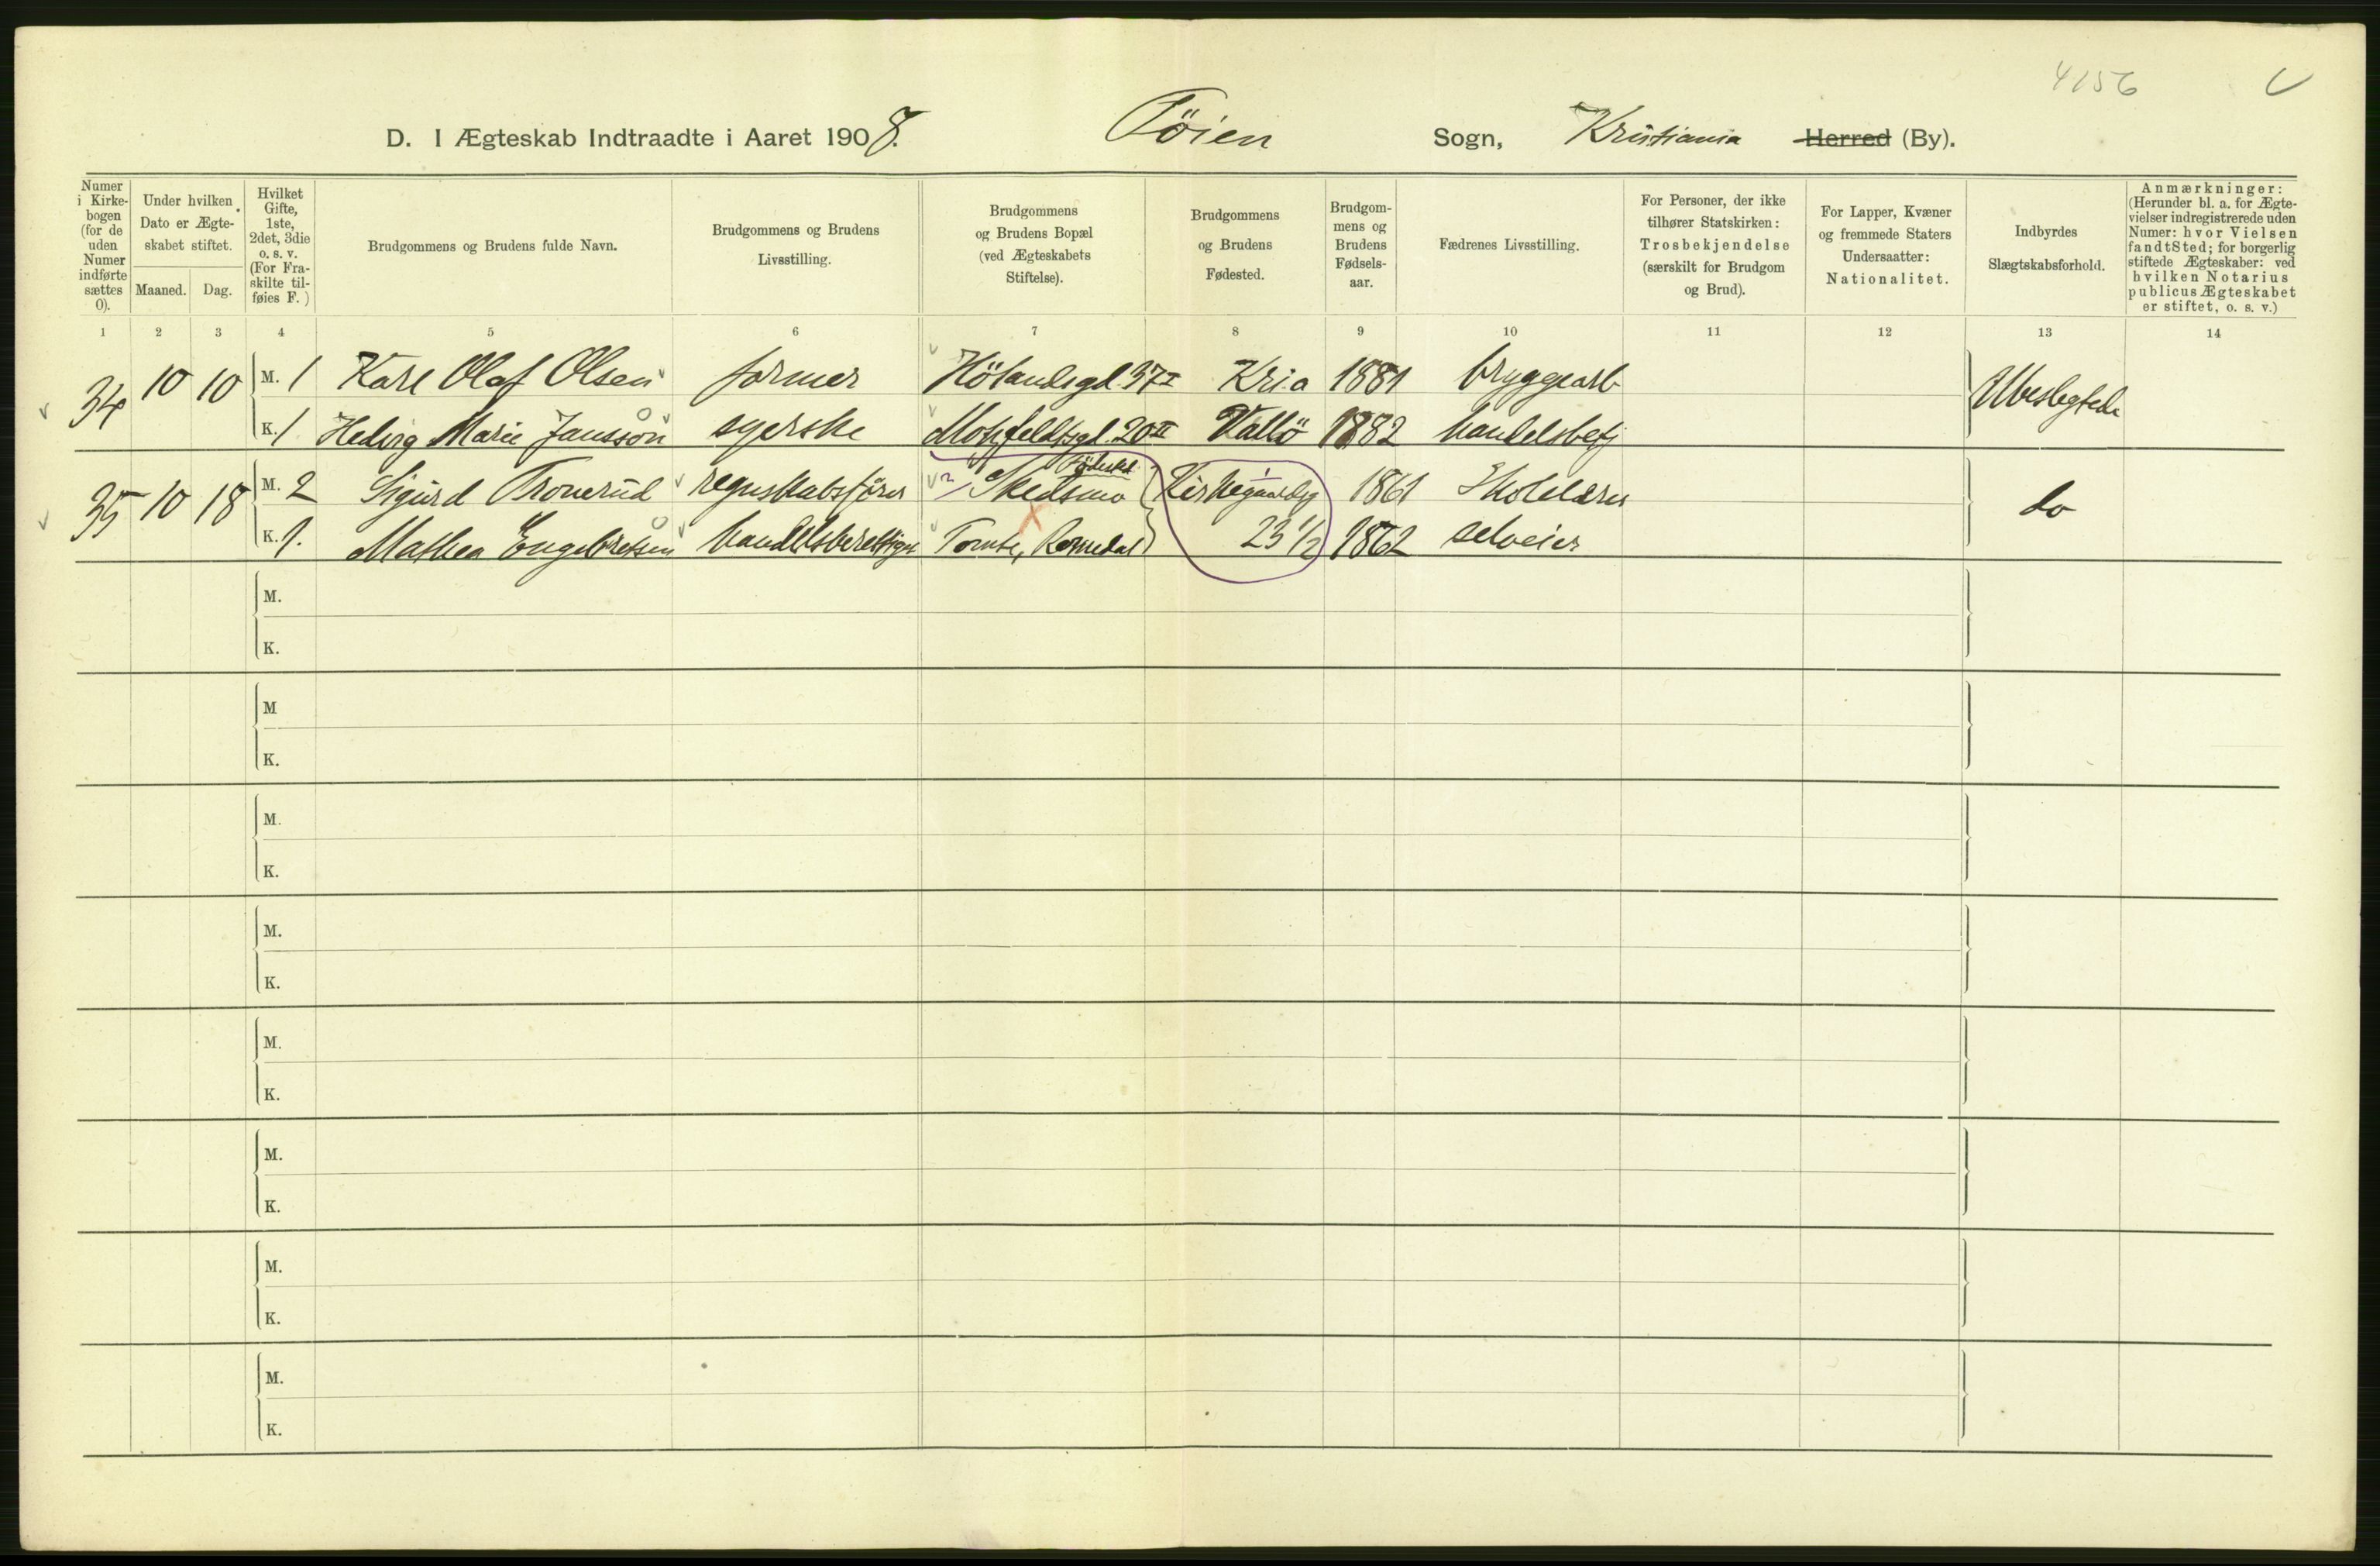 4156
D. I Ægteskab Indtraadte i Aaret 1908. Töien Sogn, Kristiania Herred (By).
Numer i Kirke-bogen (for de uden Numer indførte sættes 0).
Under hvilken Dato er Ægte-skabet stiftet.
Maaned. Dag.
Hvilket Gifte, 1ste, 2det, 3die o. s. v. (For Fra-skilte til-føies F.)
Brudgommens og Brudens fulde Navn.
Brudgommens og Brudens Livsstilling.
Brudgommens og Brudens Bopæl (ved Ægteskabets Stiftelse).
Brudgommens og Brudens Fødested.
Brudgom-mens og Brudens Fødsels-aar.
Fædrenes Livsstilling.
For Personer, der ikke tilhører Statskirken: Trosbekjendelse (særskilt for Brudgom og Brud).
For Lapper, Kvæner og fremmede Staters Undersaatter: Nationalitet.
Indbyrdes Slægtskabsforhold.
Anmærkninger: (Herunder bl. a. for Ægte-vielser indregistrerede uden Numer: hvor Vielsen fandt Sted; for borgerlig stiftede Ægteskaber: ved hvilken Notarius publicus Ægteskabet er stiftet, o. s. v.)
1 2 3 4 5 6 7 8 9 10 11 12 13 14
34 10 10 M. 1 Karl Olaf Olsen former Hölandsgd. 37 I Kria 1881 bryggearb Ubeslegtede
K. 1 Hedvig Marie Jansson syerske Motzfeldtsgd. 20 II Vallö 1882 handelsbetj
35 10 18 M. 2 Sigurd Tronerud regnskabsförer Skedsmo Kirkegaardsg 1861 Skolelærer do
K. 1. Mathea Engebretsen handelsberettiget Tomte, Romedal 23 1/2 1862 selveier
M.
K.
M
K.
M.
K.
M.
K.
M.
K.
M.
K.
M.
K.
M.
K.